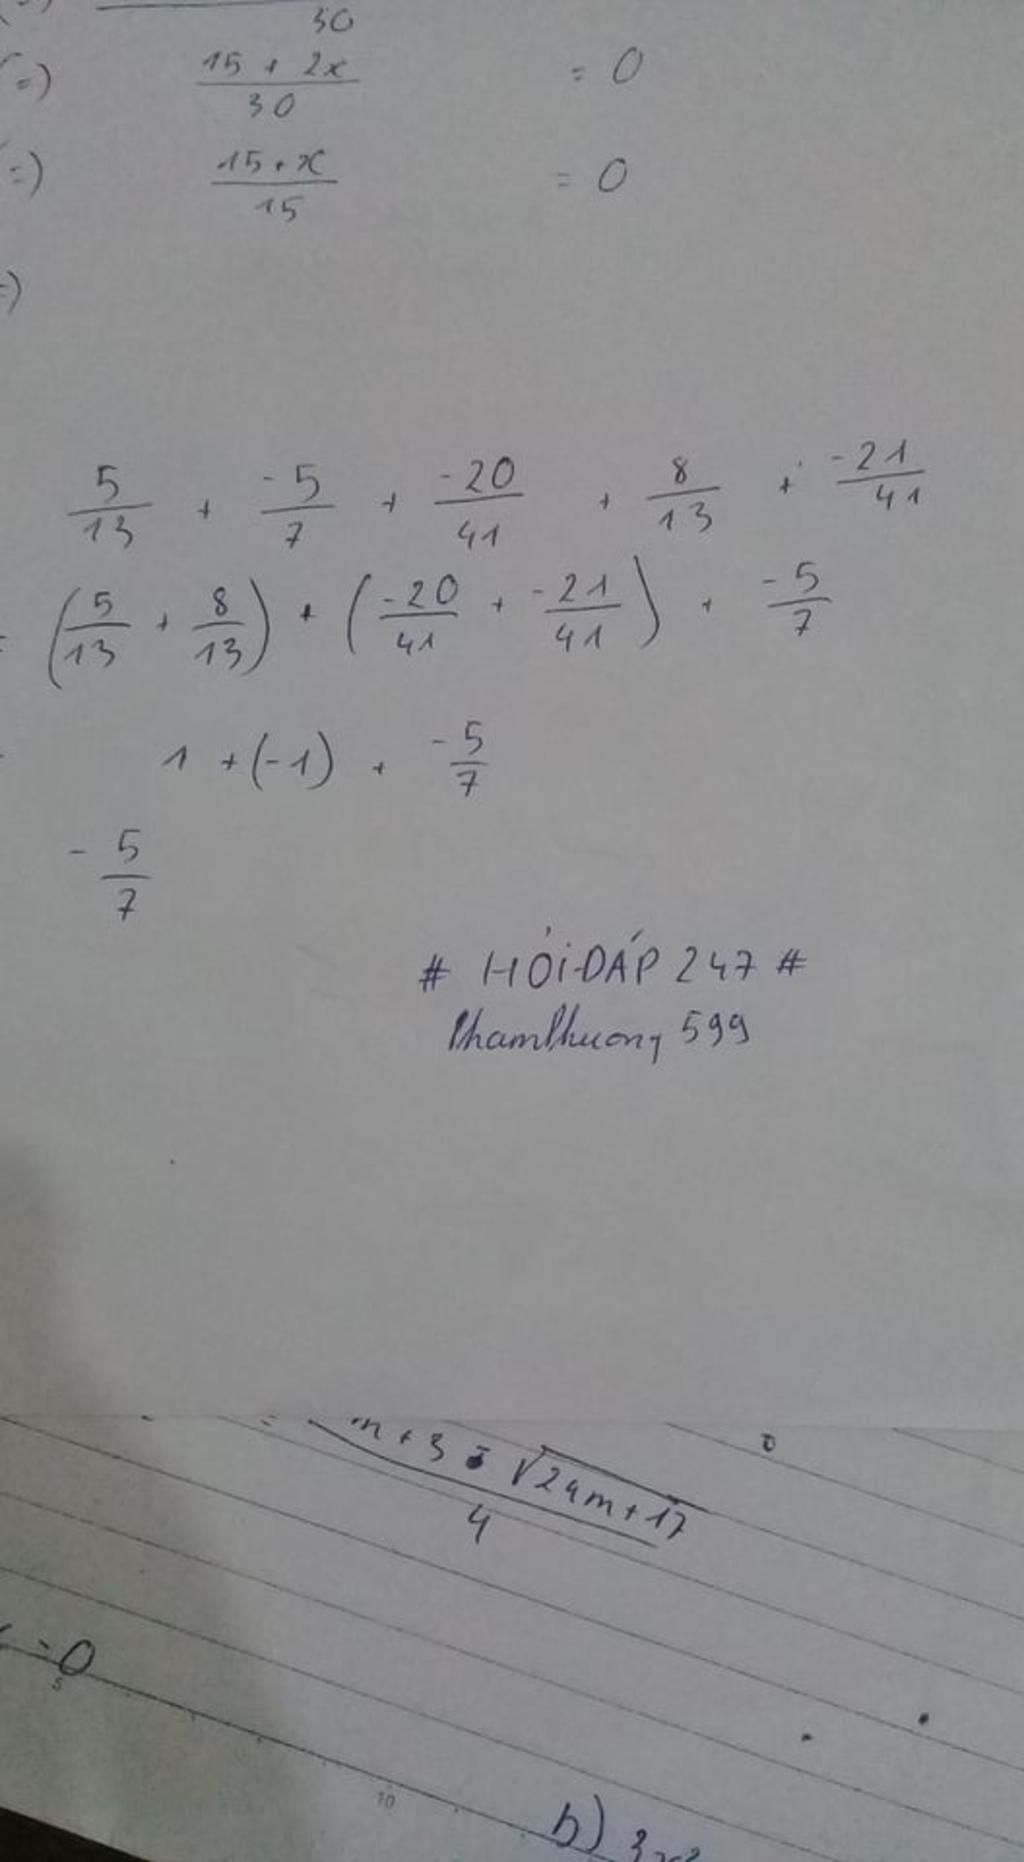 30
(=) (15 + 2x)/30 = 0
(=) (15 + x)/15 = 0
=)
5/13 + -5/7 + -20/41 + 8/13 + -21/41
= (5/13 + 8/13) + (-20/41 + -21/41) + -5/7
= 1 + (-1) + -5/7
- 5/7
# HỎI ĐÁP 247 #
PhamPhuong 599
= (m + 3 - √24m + 17)/4
= 0
5
10
b) 3x²